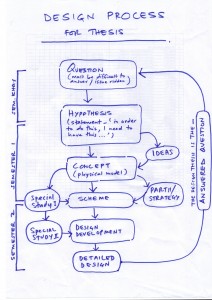 DESIGN PROCESS
FOR THESIS
SEMINAR
QUESTION
(must be difficult to
answer /
HYPOTHESIS
(statement - in order
to do this, I need to
have this ...")
SEMESTER 1
IDEAS
CONCEPT
(physical model)
Special
Study 1
SCHEME
PARTI/
STRATEGY
SEMESTER 2
Special
STUDY 2
DESIGN
DEVELOPMENT
DETAILED
DESIGN
THE DESIGN THESIS IS THE ...
ANSWERED QUESTION